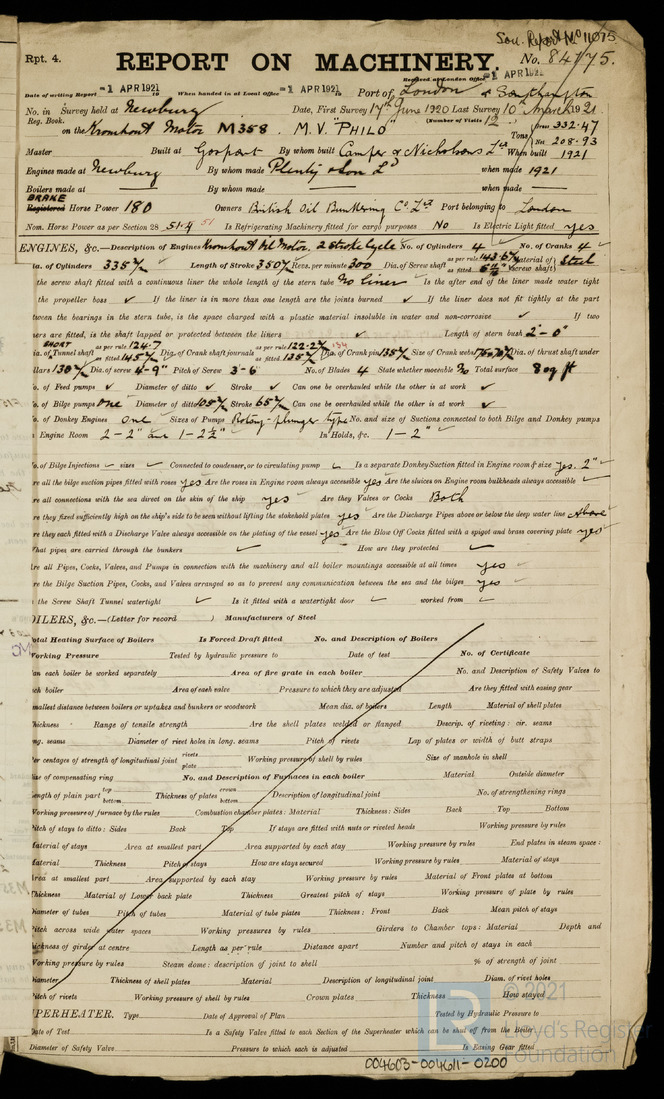 Sou. Report No 11075
Rpt. 4.
REPORT ON MACHINERY.
No. 84775.
Received at London Office 1 APR 1921
Date of writing Report 1 APR 1921 19 When handed in at Local Office 1 APR 1921 19 Port of London & Southampton
No. in Survey held at Newbury Date, First Survey 17th June 1920 Last Survey 10th March 1921
Reg. Book. (Number of Visits 12)
on the Kromhout Motor M358. M.V. "PHILO" Tons Gross 332.47 Net 208.93
Master Built at Gosport By whom built Camper & Nicholsons Ltd When built 1921
Engines made at Newbury By whom made Plenty & Son Ld when made 1921
Boilers made at By whom made when made
BRAKE
Registered Horse Power 180 Owners British Oil Bunkering Co Ltd Port belonging to London
Nom. Horse Power as per Section 28 51.4 51 Is Refrigerating Machinery fitted for cargo purposes No Is Electric Light fitted yes
ENGINES, &c.—Description of Engines Kromhout Oil Motor. 2 stroke Cycle No. of Cylinders 4 No. of Cranks 4
ia. of Cylinders 335 Length of Stroke 350 Revs. per minute 300 Dia. of Screw shaft as per rule as fitted Material of screw shaft Steel
the screw shaft fitted with a continuous liner the whole length of the stern tube No liner Is the after end of the liner made water tight
the propeller boss ✓ If the liner is in more than one length are the joints burned ✓ If the liner does not fit tightly at the part
between the bearings in the stern tube, is the space charged with a plastic material insoluble in water and non-corrosive ✓ If two
ners are fitted, is the shaft lapped or protected between the liners ✓ Length of stern bush 2'-0"
SHORT
ia. of Tunnel shaft as per rule 124.7 as fitted 145 Dia. of Crank shaft journals as per rule 122.2 as fitted 135 Dia. of Crank pin 135 Size of Crank webs Dia. of thrust shaft under
llars 130 Dia. of screw 4'-9" Pitch of Screw 3'-6" No. of Blades 4 State whether moveable No Total surface 8 sq ft
o. of Feed pumps ✓ Diameter of ditto ✓ Stroke ✓ Can one be overhauled while the other is at work ✓
o. of Bilge pumps One Diameter of ditto 105 Stroke 65 Can one be overhauled while the other is at work ✓
o. of Donkey Engines One Sizes of Pumps Rotary-plunger type No. and size of Suctions connected to both Bilge and Donkey pumps
Engine Room 2-2" and 1-2½" In Holds, &c. 1-2"
o. of Bilge Injections ✓ sizes ✓ Connected to condenser, or to circulating pump ✓ Is a separate Donkey Suction fitted in Engine room & size yes. 2"
re all the bilge suction pipes fitted with roses yes Are the roses in Engine room always accessible yes Are the sluices on Engine room bulkheads always accessible ✓
re all connections with the sea direct on the skin of the ship yes Are they Valves or Cocks Both
re they fixed sufficiently high on the ship's side to be seen without lifting the stokehold plates yes Are the Discharge Pipes above or below the deep water line Above
re they each fitted with a Discharge Valve always accessible on the plating of the vessel yes Are the Blow Off Cocks fitted with a spigot and brass covering plate yes
hat pipes are carried through the bunkers ✓ How are they protected ✓
re all Pipes, Cocks, Valves, and Pumps in connection with the machinery and all boiler mountings accessible at all times yes
re the Bilge Suction Pipes, Cocks, and Valves arranged so as to prevent any communication between the sea and the bilges yes
the Screw Shaft Tunnel watertight ✓ Is it fitted with a watertight door ✓ worked from ✓
OILERS, &c.—(Letter for record ) Manufacturers of Steel
otal Heating Surface of Boilers Is Forced Draft fitted No. and Description of Boilers
orking Pressure Tested by hydraulic pressure to Date of test No. of Certificate
an each boiler be worked separately Area of fire grate in each boiler No. and Description of Safety Valves to
ch boiler Area of each valve Pressure to which they are adjusted Are they fitted with easing gear
mallest distance between boilers or uptakes and bunkers or woodwork Mean dia. of boilers Length Material of shell plates
hickness Range of tensile strength Are the shell plates welded or flanged Descrip. of riveting: cir. seams
ng. seams Diameter of rivet holes in long. seams Pitch of rivets Lap of plates or width of butt straps
er centages of strength of longitudinal joint rivets plate Working pressure of shell by rules Size of manhole in shell
ize of compensating ring No. and Description of Furnaces in each boiler Material Outside diameter
ength of plain part top bottom Thickness of plates crown bottom Description of longitudinal joint No. of strengthening rings
Working pressure of furnace by the rules Combustion chamber plates: Material Thickness: Sides Back Top Bottom
itch of stays to ditto: Sides Back Top If stays are fitted with nuts or riveted heads Working pressure by rules
aterial of stays Area at smallest part Area supported by each stay Working pressure by rules End plates in steam space:
aterial Thickness Pitch of stays How are stays secured Working pressure by rules Material of stays
rea at smallest part Area supported by each stay Working pressure by rules Material of Front plates at bottom
hickness Material of Lower back plate Thickness Greatest pitch of stays Working pressure of plate by rules
iameter of tubes Pitch of tubes Material of tube plates Thickness: Front Back Mean pitch of stays
itch across wide water spaces Working pressures by rules Girders to Chamber tops: Material Depth and
hickness of girder at centre Length as per rule Distance apart Number and pitch of stays in each
orking pressure by rules Steam dome: description of joint to shell % of strength of joint
iameter Thickness of shell plates Material Description of longitudinal joint Diam. of rivet holes
itch of rivets Working pressure of shell by rules Crown plates Thickness How stayed
UPERHEATER. Type Date of Approval of Plan Tested by Hydraulic Pressure to
ate of Test Is a Safety Valve fitted to each Section of the Superheater which can be shut off from the Boiler
Diameter of Safety Valve Pressure to which each is adjusted Is Easing Gear fitted
© 2021
Lloyd's Register
Foundation
004603-004611-0200